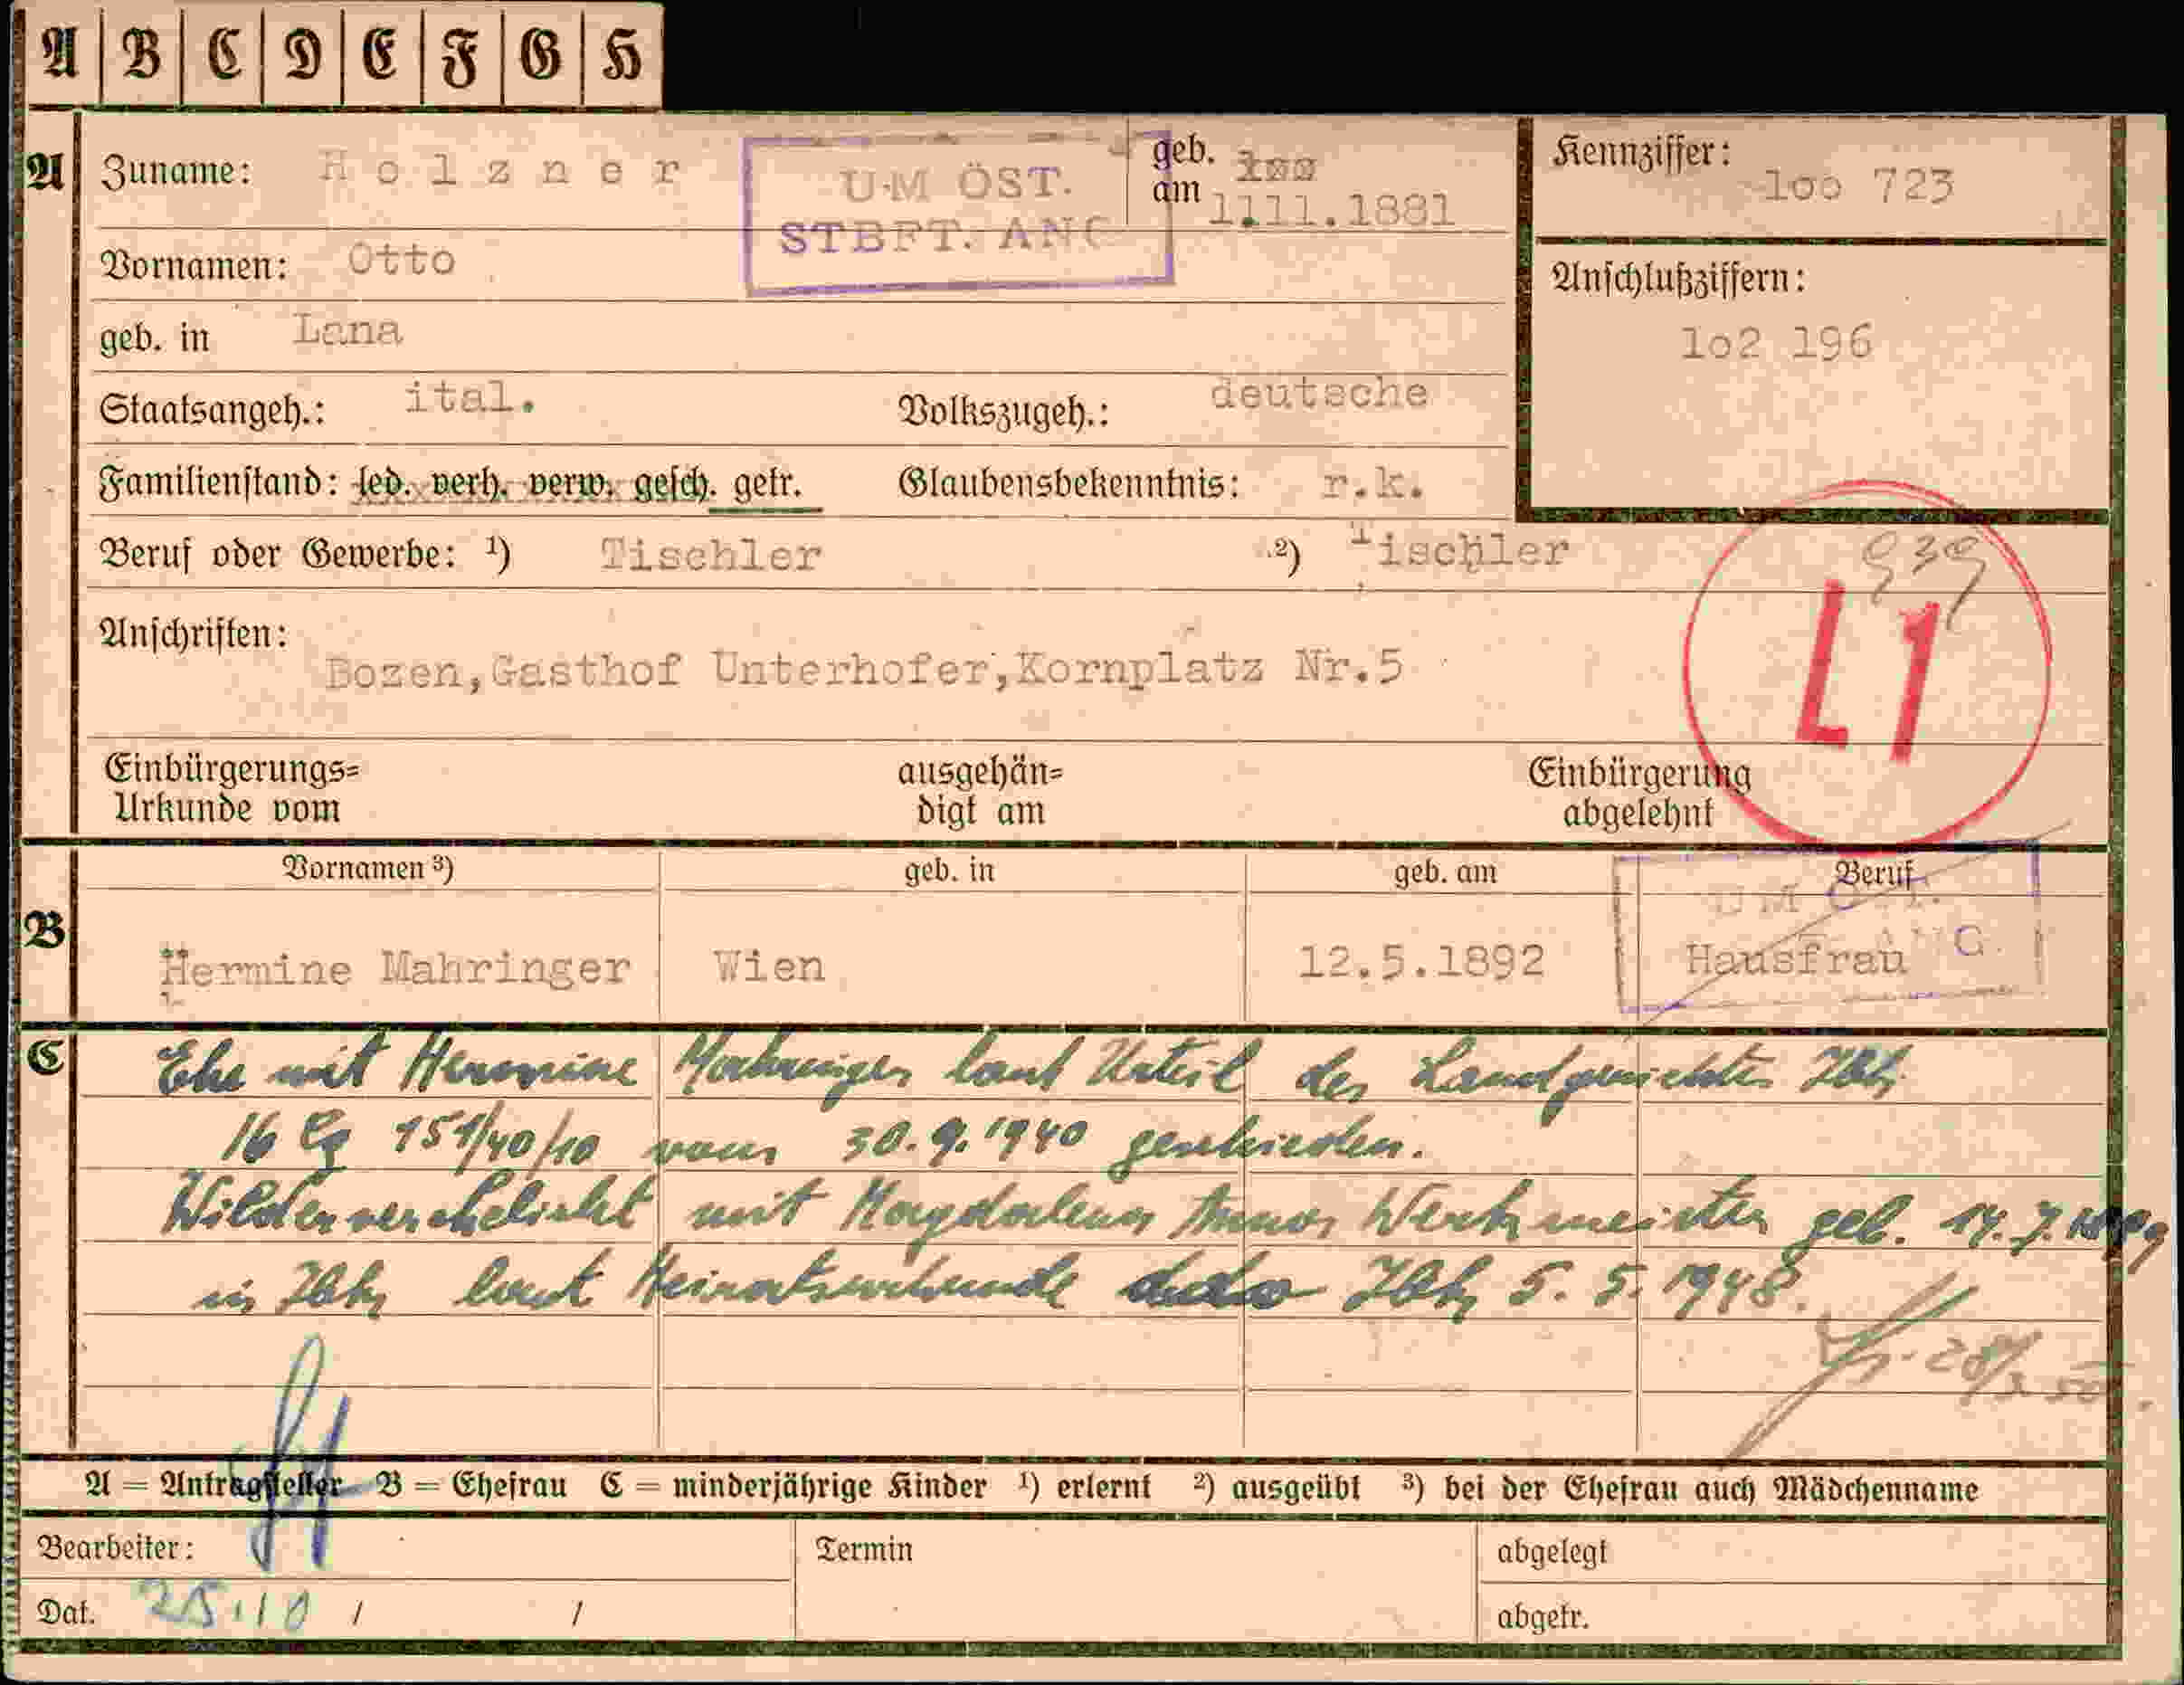 A B C D E F G H
A Zuname: Holzner geb. am 1.11.1881 Kennziffer: 1oo 723
U·M ÖST.
STBFT. ANG
Vornamen: Otto Anschlußziffern:
geb. in Lana 1o2 196
Staatsangeh.: ital. Volkszugeh.: deutsche
Familienstand: led. verh. verw. gesch. getr. Glaubensbekenntnis: r.k.
Beruf oder Gewerbe: ¹) Tischler ²) Tischler
939
L1
Anschriften:
Bozen,Gasthof Unterhofer,Kornplatz Nr.5
Einbürgerungs= ausgehän= Einbürgerung
Urkunde vom digt am abgelehnt
Vornamen ³) geb. in geb. am Beruf
B Hermine Mahringer Wien 12.5.1892 Hausfrau
C Ehe mit Hermine Mahringer laut Urteil des Landgerichtes Ibk
16 Cg 151/40/10 vom 30.9.1940 geschieden.
Wiederverehelicht mit Magdalena Anna Werkmeister geb. 14.7.
in Ibk laut Heiratsurkunde Ibk 5.5.1948.
A = Antragsteller B = Ehefrau C = minderjährige Kinder ¹) erlernt ²) ausgeübt ³) bei der Ehefrau auch Mädchenname
Bearbeiter: Termin abgelegt
Dat. 25.10 / / abgetr.